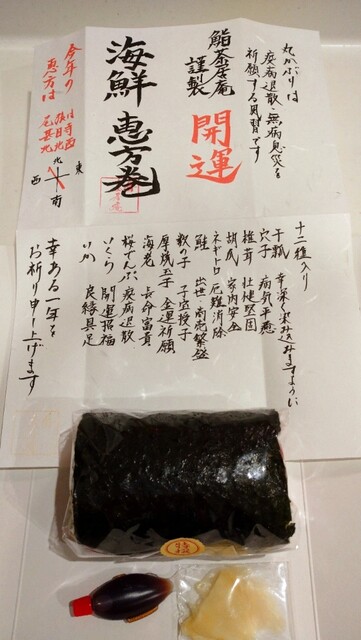 丸かぶりは
疫病退散・無病息災を
祈願する風習です
鮨 茶居庵
謹製
開運
海鮮 恵方巻
今年の
恵方は
北
東
西
南
十二種入り
干瓢 幸深く染み込みますように
穴子 病気平癒
椎茸 壮健堅固
胡瓜 家内安全
ネギトロ 厄難消除
鮭 出世・商売繁盛
数の子 子宝授子
厚焼玉子 金運祈願
海老 長命富貴
桜でんぶ 疫病退散
いくら 開運招福
いか 良縁具足
幸ある一年を
お祈り申し上げます